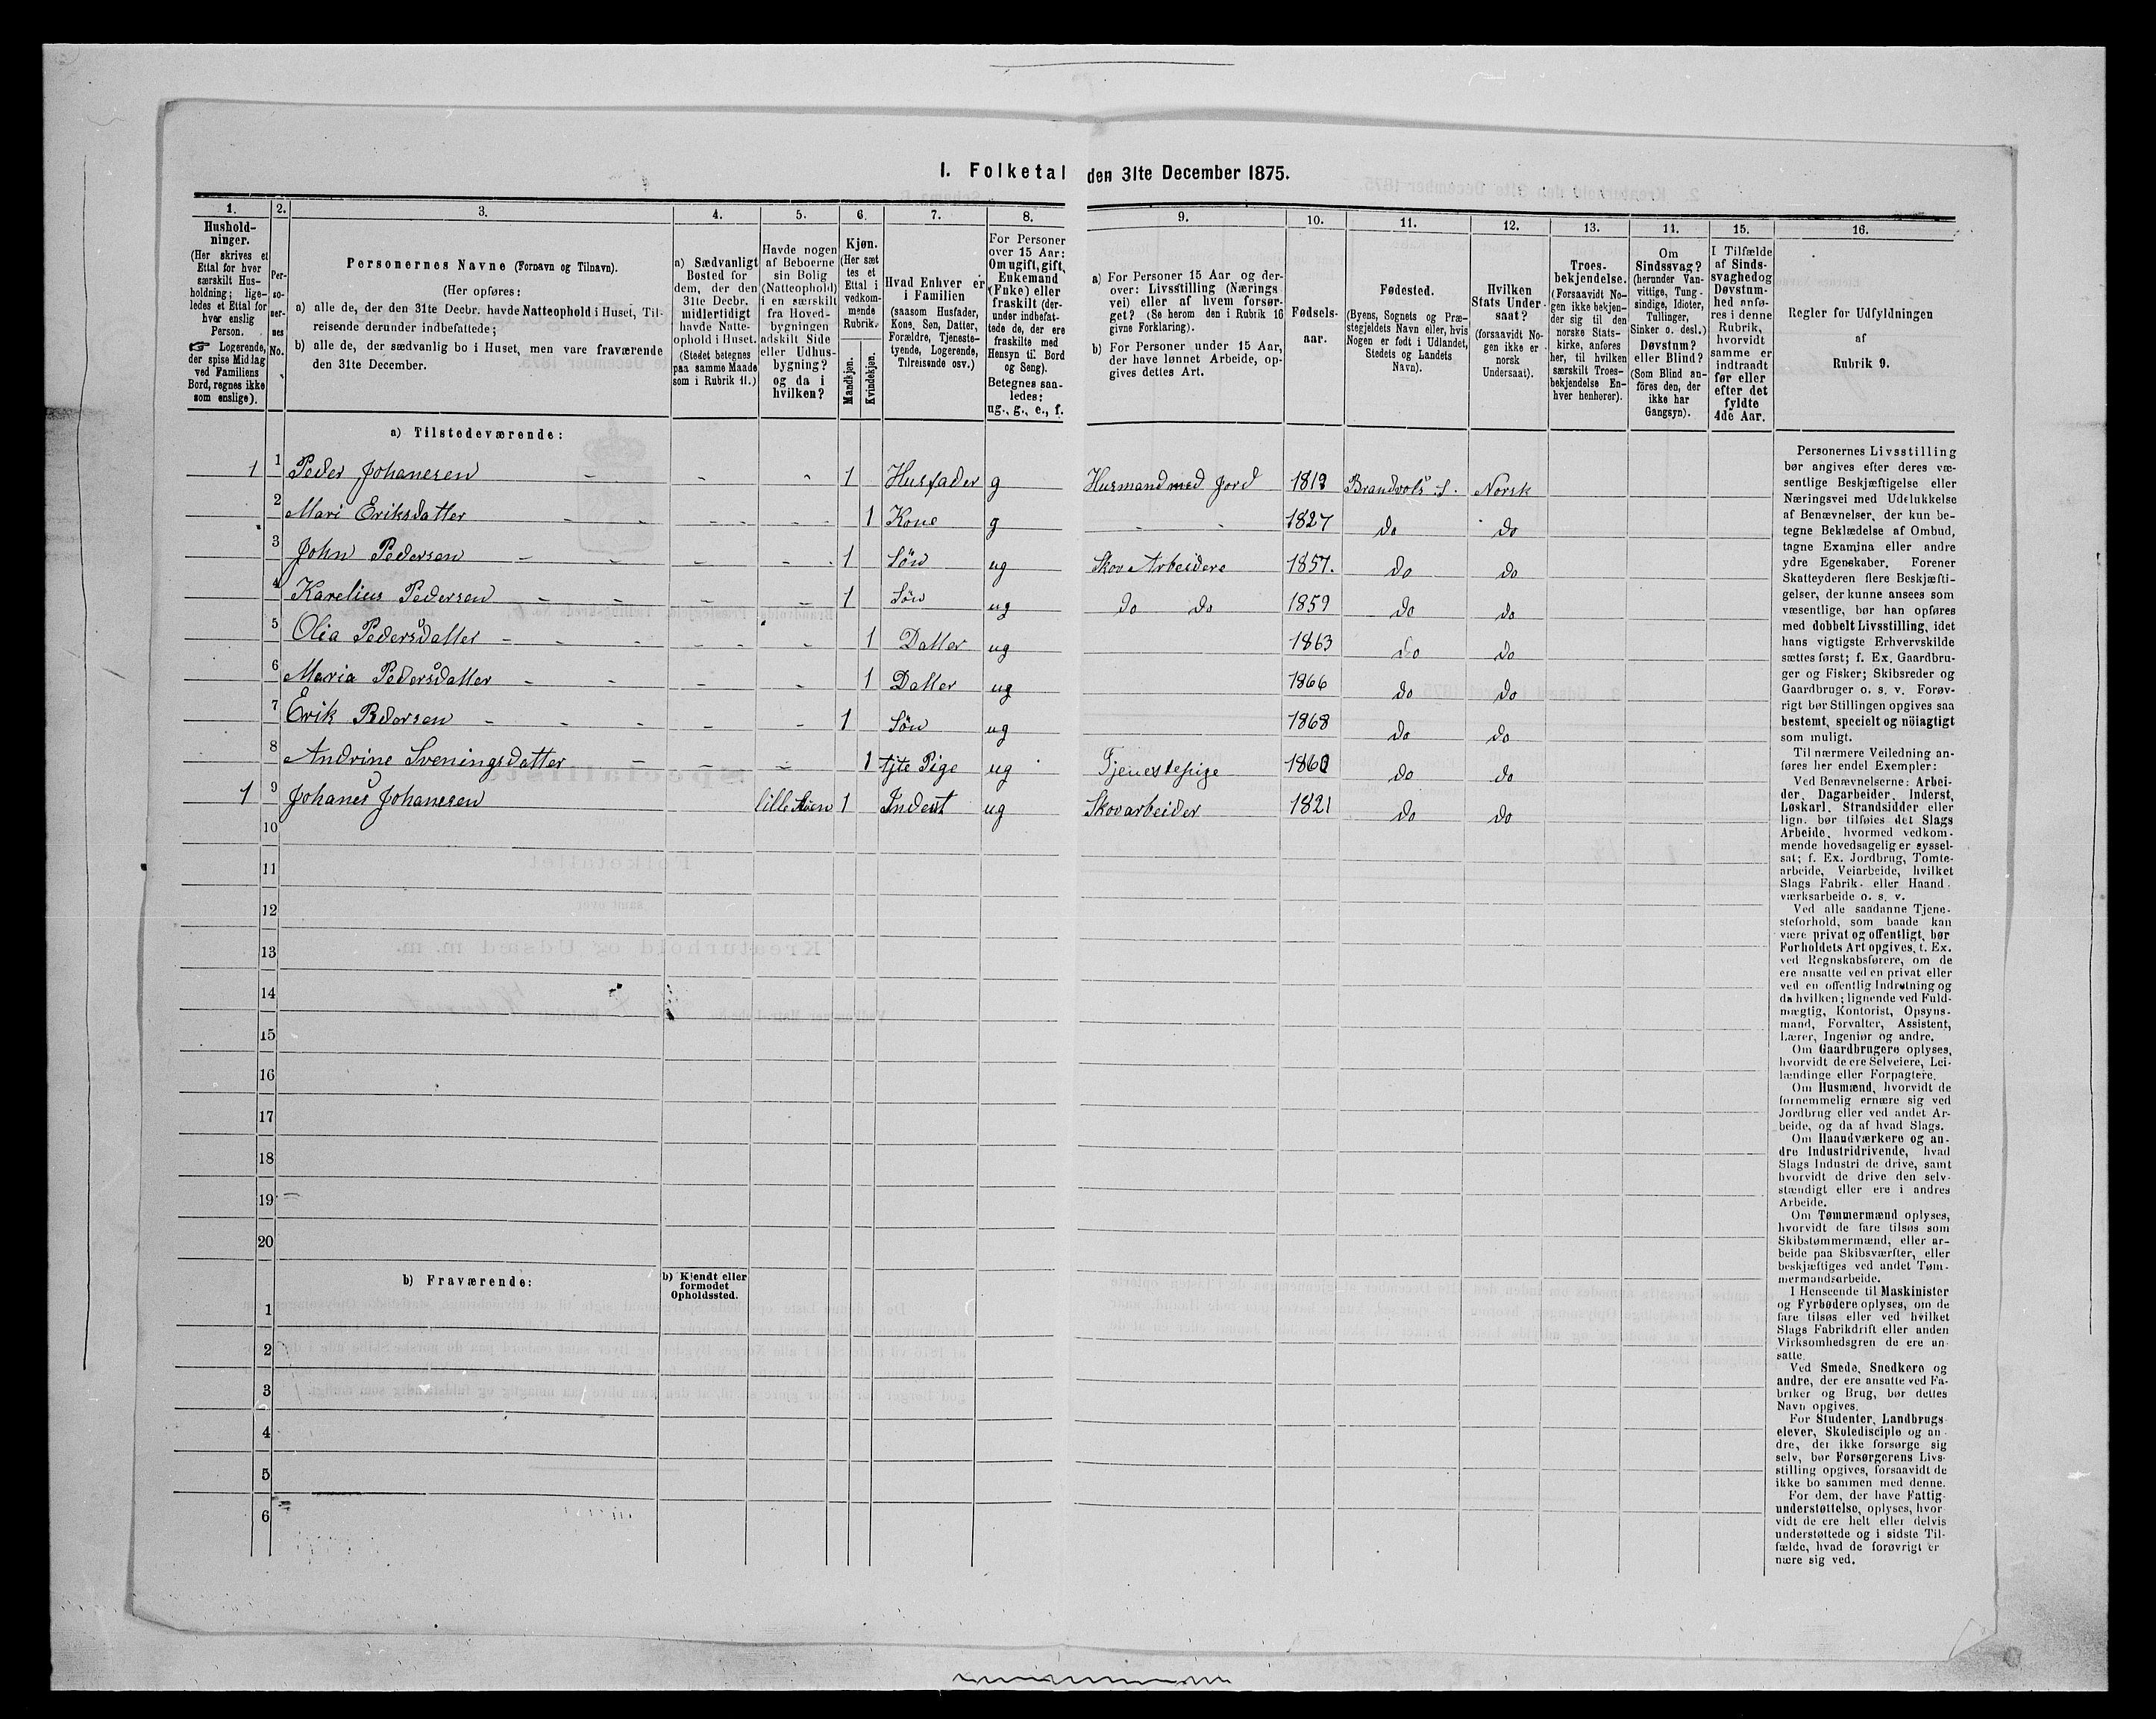 I. Folketal den 31te December 1875.
1. 2. 3. 4. 5. 6. 7. 8. 9. 10. 11. 12. 13. 14. 15. 16.
Hushold-
ninger.
(Her skrives et
Ettal for hver
særskilt Hus-
holdning; lige-
ledes et Ettal for
hver enslig
Person.
☞ Logerende,
der spise Middag
ved Familiens
Bord, regnes ikke
som enslige).
Per-
so-
ner-
nes
No.
Personernes Navne (Fornavn og Tilnavn).
(Her opføres:
a) alle de, der den 31te Decbr. havde Natteophold i Huset, Til-
reisende derunder indbefattede;
b) alle de, der sædvanlig bo i Huset, men vare fraværende
den 31te December.
a) Sædvanligt
Bosted for
dem, der den
31te Decbr.
midlertidigt
havde Natte-
ophold i Huset.
(Stedet betegnes
paa samme Maade
som i Rubrik 11.)
Havde nogen
af Beboerne
sin Bolig
(Natteophold)
i en særskilt
fra Hoved-
bygningen
adskilt Side
eller Udhus-
bygning?
og da i
hvilken?
Kjøn.
(Her sæt
tes et
Ettal i
vedkom-
mende
Rubrik.
Mandkjøn.
Kvindekjøn.
Hvad Enhver er
i Familien
(saasom Husfader,
Kone, Søn, Datter,
Forældre, Tjeneste-
tyende, Logerende,
Tilreisende osv.)
For Personer
over 15 Aar:
Om ugift, gift,
Enkemand
(Enke) eller
fraskilt (der-
under indbefat-
tede de, der ere
fraskilte med
Hensyn til Bord
og Seng).
Betegnes saa-
ledes:
ug., g., e., f.
a) For Personer 15 Aar og der-
over: Livsstilling (Nærings
vei) eller af hvem forsør-
get? (Se herom den i Rubrik 16
givne Forklaring).
b) For Personer under 15 Aar,
der have lønnet Arbeide, op-
gives dettes Art.
Fødsels-
aar.
Fødested.
(Byens, Sognets og Præ-
stegjeldets Navn eller, hvis
Nogen er født i Udlandet,
Stedets og Landets
Navn).
Hvilken
Stats Under-
saat?
(forsaavidt No-
gen ikke er
norsk
Undersaat).
Troes-
bekjendelse.
(Forsaavidt No-
gen ikke bekjen-
der sig til den
norske Stats-
kirke, anføres
her, til hvilken
særskilt Troes-
bekjendelse En-
hver henhører).
Om
Sindssvag?
(herunder Van-
vittige, Tung-
sindige, Idioter,
Tullinger,
Sinker o. desl.)
Døvstum?
eller Blind?
(Som Blind an-
föres den, der
ikke har
Gangsyn).
I Tilfælde
af Sinds-
svaghed og
Døvstum-
hed anfø-
res i denne
Rubrik,
hvorvidt
samme er
indtraadt
før eller
efter det
fyldte
4de Aar.
Regler for Udfyldningen
af
Rubrik 9.
a) Tilstedeværende:
1 1 Peder Johanesen 1 Husfader g Husmand med Jord 1812 Brandvols S. Norsk
2 Mari Eriksdatter 1 Kone g 1827 do do
3 John Pedersen 1 Sön ug Skov Arbeidere 1857. do do
4 Karelius Pedersen 1 Sön ug do do 1859 do do
5 Olia Pedersdatter 1 Datter ug 1863 do do
6 Maria Pedersdatter 1 Datter ug 1866 do do
7 Erik Pedersen 1 Sön ug 1868 do do
8 Andrine Sveningsdatter 1 tjte Pige ug Tjenestepige 1860 do do
1 9 Johanes Johanesen lille Stuen 1 Inderst ug Skovarbeider 1821 do do
10
11
12
13
14
15
16
17
18
19
20
b) Fraværende:
b) Kjendt eller
formodet
Opholdssted.
1
2
3
4
5
6
Personernes Livsstilling
bør angives efter deres væ-
sentlige Beskjæftigelse eller
Næringsvei med Udelukkelse
af Benævnelser, der kun be-
tegne Beklædelse af Ombud,
tagne Examina eller andre
ydre Egenskaber. Forener
Skatteyderen flere Beskjæfti-
gelser, der kunne ansees som
væsentlige, bør han opføres
med dobbelt Livsstilling, idet
hans vigtigste Erhvervskilde
sættes først; f. Ex. Gaardbru-
ger og Fisker; Skibsreder og
Gaardbruger o. s. v. Forøv-
rigt bør Stillingen opgives saa
bestemt, specielt og nöiagtigt
som muligt.
Til nærmere Veiledning an-
føres her endel Exempler:
Ved Benævnelserne: Arbei-
der, Dagarbeider, Inderst,
Løskarl, Strandsidder eller
lign. bør tilføies det Slags
Arbeide, hvormed vedkom-
mende hovedsagelig er syssel-
sat; f. Ex. Jordbrug, Tomte-
arbeide, Veiarbeide, hvilket
Slags Fabrik- eller Haand-
værksarbeide o. s. v.
Ved alle saadanne Tjene-
steforhold, som baade kan
være privat og offentligt, bør
Forholdets Art opgives, t. Ex.
ved Regnskabsførere, om de
ere ansatte ved en privat eller
ved en offentlig Indretning og
da hvilken; lignende ved Fuld-
mægtig, Kontorist, Opsyns-
mand, Forvalter, Assistent,
Lærer, Ingeniør og andre.
Om Gaardbrugere oplyses,
hvorvidt de ere Selveiere, Lei-
lændinge eller Forpagtere.
Om Husmænd, hvorvidt de
fornemmelig ernære sig ved
Jordbrug eller ved andet Ar-
beide, og da af hvad Slags.
Om Haandværkere og an-
dre Industridrivende, hvad
Slags Industri de drive, samt
hvorvidt de drive den selv-
stændigt eller ere i andres
Arbeide.
Om Tømmermænd oplyses,
hvorvidt de fare tilsøs som
Skibstømmermænd, eller ar-
beide paa Skibsværfter, eller
beskjæftiges ved andet Tøm-
mermandsarbeide.
I Henseende til Maskinister
og Fyrbødere oplyses, om de
fare tilsøs eller ved hvilket
Slags Fabrikdrift eller anden
Virksomhedsgren de ere an-
satte.
Ved Smede, Snedkere og
andre, der ere ansatte ved Fa-
briker og Brug, bør dettes
Navn opgives.
For Studenter, Landbrugs
elever, Skoledisciple og an-
dre, der ikke forsørge sig
selv, bør Forsørgerens Livs-
stilling opgives, forsaavidt de
ikke bo sammen med denne.
For dem, der have Fattig-
understøttelse, oplyses, hvor-
vidt de ere helt eller delvis
understøttede og i sidste Til-
fælde, hvad de forøvrigt er
nære sig ved.